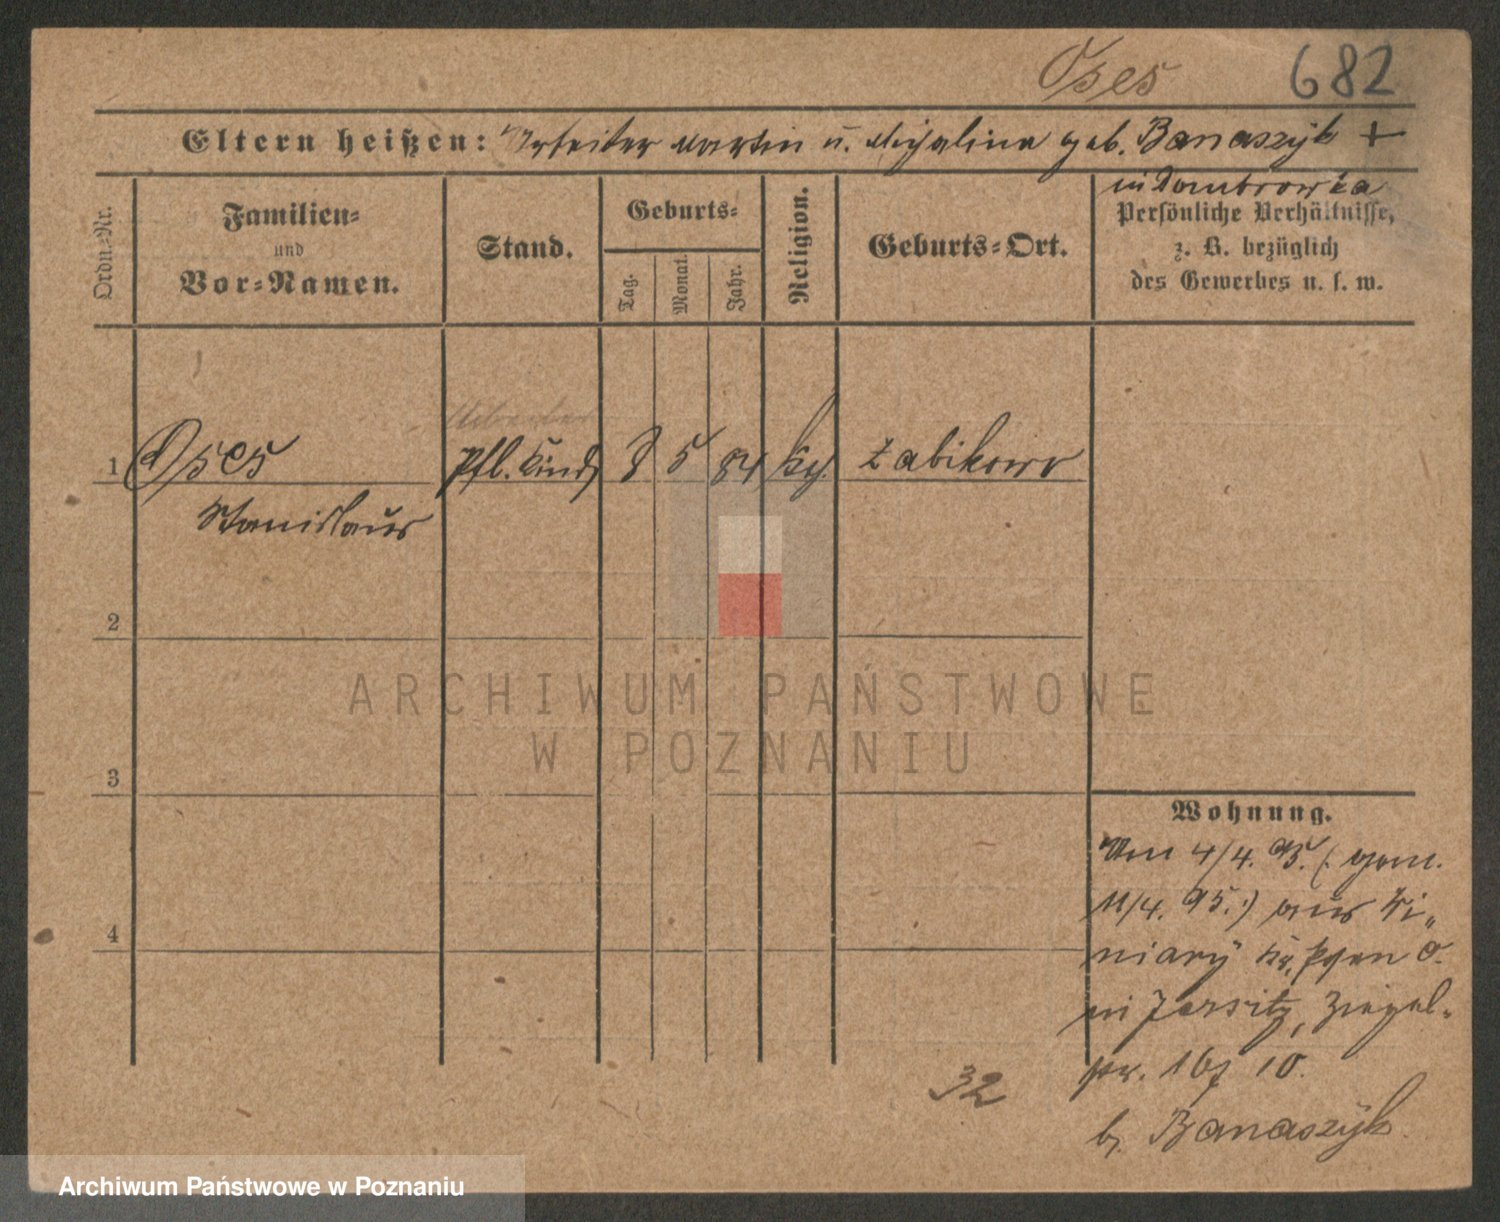 Oses 682
Eltern heißen: Arbeiter Martin u. Michalina geb. Banaszÿk +
in Dombrowka
Ordn.-Nr.
Familien-
und
Vor-Namen.
Stand.
Geburts-
Tag.
Monat.
Jahr.
Religion.
Geburts-Ort.
Persönliche Verhältnisse,
z. B. bezüglich
des Gewerbes u. s. w.
1 Oses Pfl. Kind 8 5 84 kg. Zabikowo
Stanislaus
2
3
4
Wohnung.
Am 4/4. 95. (: gem.
11/4. 95. :) aus Wi„
niarÿ Kr. Posen O.
in Jersitz, Ziegel-
str. 10.
b. Banaszÿk
32
ARCHIWUM PAŃSTWOWE
W POZNANIU
Archiwum Państwowe w Poznaniu